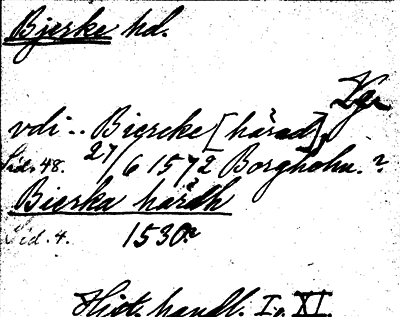 Bjerke hd.
Vgr
vdi .. Biercke [härad],
Sid. 48. 27/6 1572 Borgholm.?
Bierka härdh
Sid. 4. 1530
Hist. handl. I, XI.